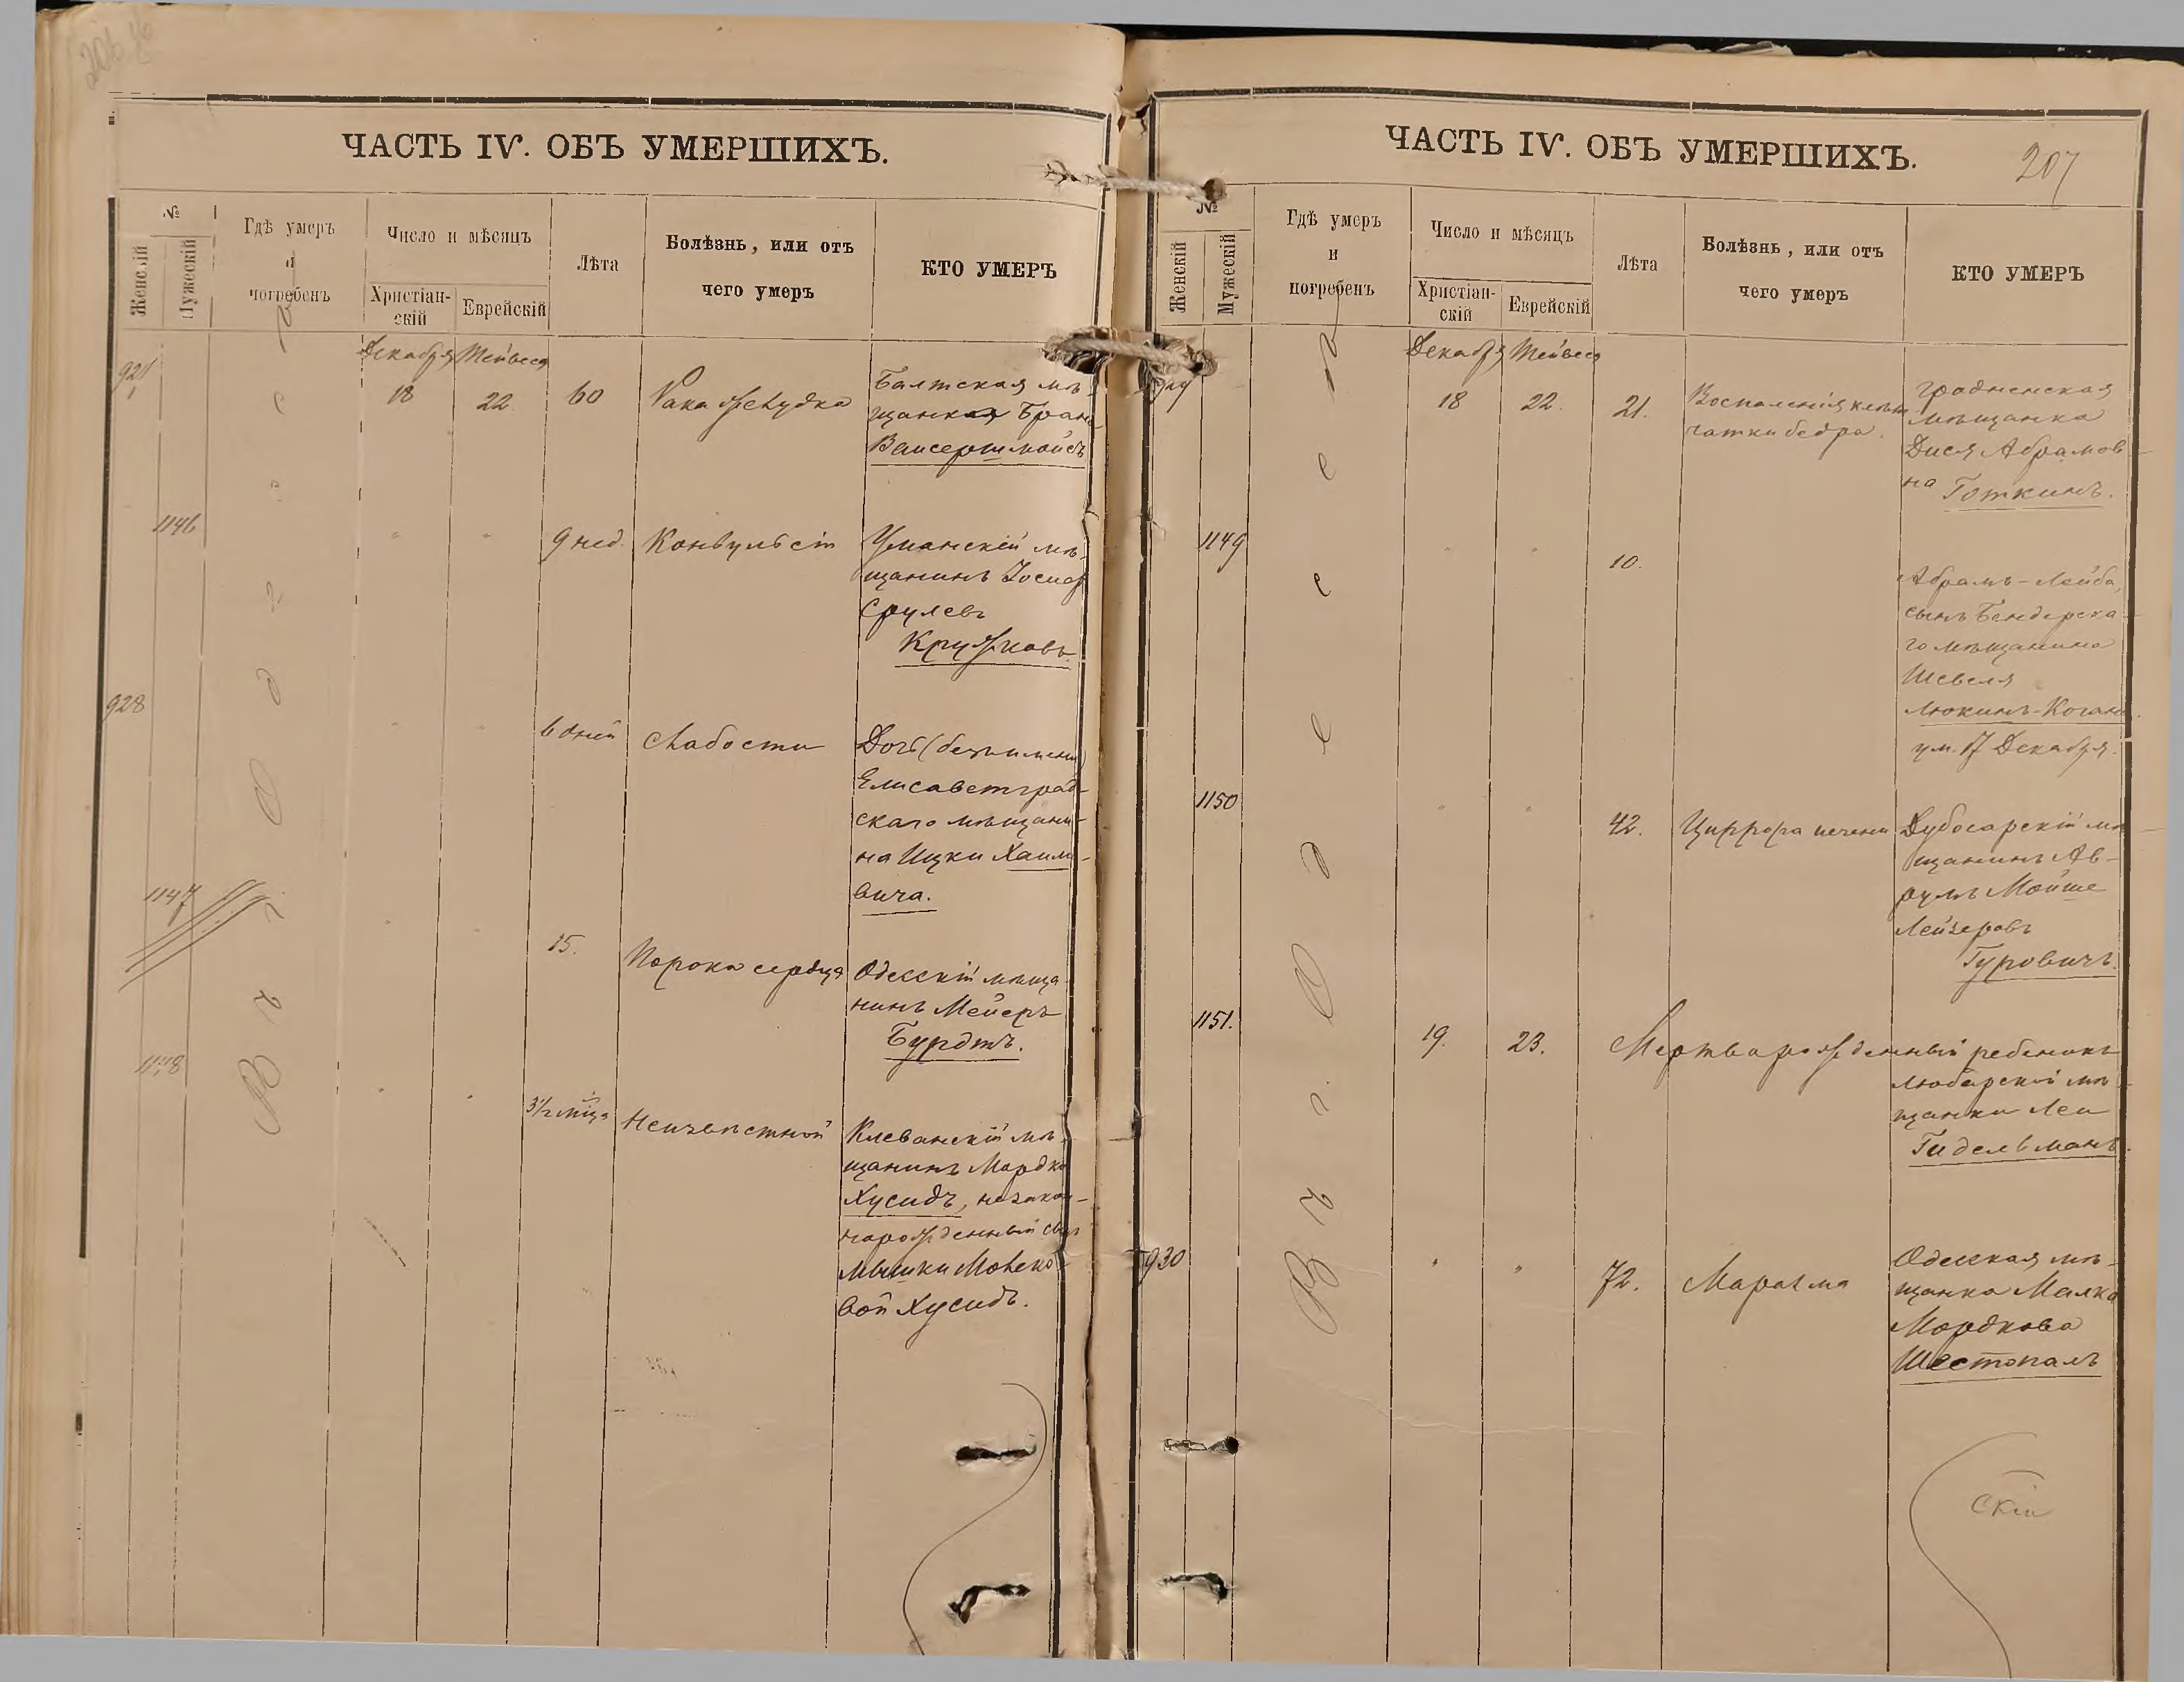 ЧАСТЬ IV. ОБЪ УМЕРШИХЪ.
№
Женскій
Мужескій
Гдѣ умеръ
и
погребенъ
Число и мѣсяцъ
Христіан-
скій
Еврейскій
Лѣта
Болѣзнь, или отъ
чего умеръ
КТО УМЕРЪ
Въ г. Одессѣ
Декабря Тейвеса
18 22. 60 Рака желудка
Балтская мѣ-
щанка Брана
Вайсершмойсъ
1146 " " 9 нед. Конвульсіи
Уманскій мѣ-
щанинъ Іосиф
Срулевъ
Кружковъ.
928 " " 6 дней Слабости
Дочь (безъимен)
Елисаветград-
скаго мѣщани-
на Ицки Хаимо-
вича.
1147 " " 15. Порока сердца
Одесскій мѣща-
нинъ Мейеръ
Бурдтъ.
1148 " " 3½ мѣца Неизвѣстной
Клеванскій мѣ-
щанинъ Мордко
Хусидъ, незакон-
норожденный сынъ
Мышки Мошко-
вой Хусидъ.
ЧАСТЬ IV. ОБЪ УМЕРШИХЪ.
207
№
Женскій
Мужескій
Гдѣ умеръ
и
погребенъ
Число и мѣсяцъ
Христіан-
скій
Еврейскій
Лѣта
Болѣзнь, или отъ
чего умеръ
КТО УМЕРЪ
Въ г. Одессѣ
Декабря Тейвеса
929 18 22. 21. Воспаленія клѣт-
чатки бедра.
Гродненская
мѣщанка
Дися Абрамов-
на Готкинъ.
1149 " " 10.
Абрамъ-Лейба,
сынъ Бендерска-
го мѣщанина
Шевеля
Люкинъ-Коганъ
ум. 17 Декабря.
1150 " " 42. Цирроза печени
Дубосарскій мѣ-
щанинъ Ав-
румъ Мойше
Лейзеровъ
Гуровичъ.
1151. 19. 23. Мертворожденный ребенокъ
Любарской мѣ-
щанки Леи
Гидельманъ.
930 " " 72. Маразма
Одесская мѣ-
щанка Малка
Мордкова
Шестопалъ
скій